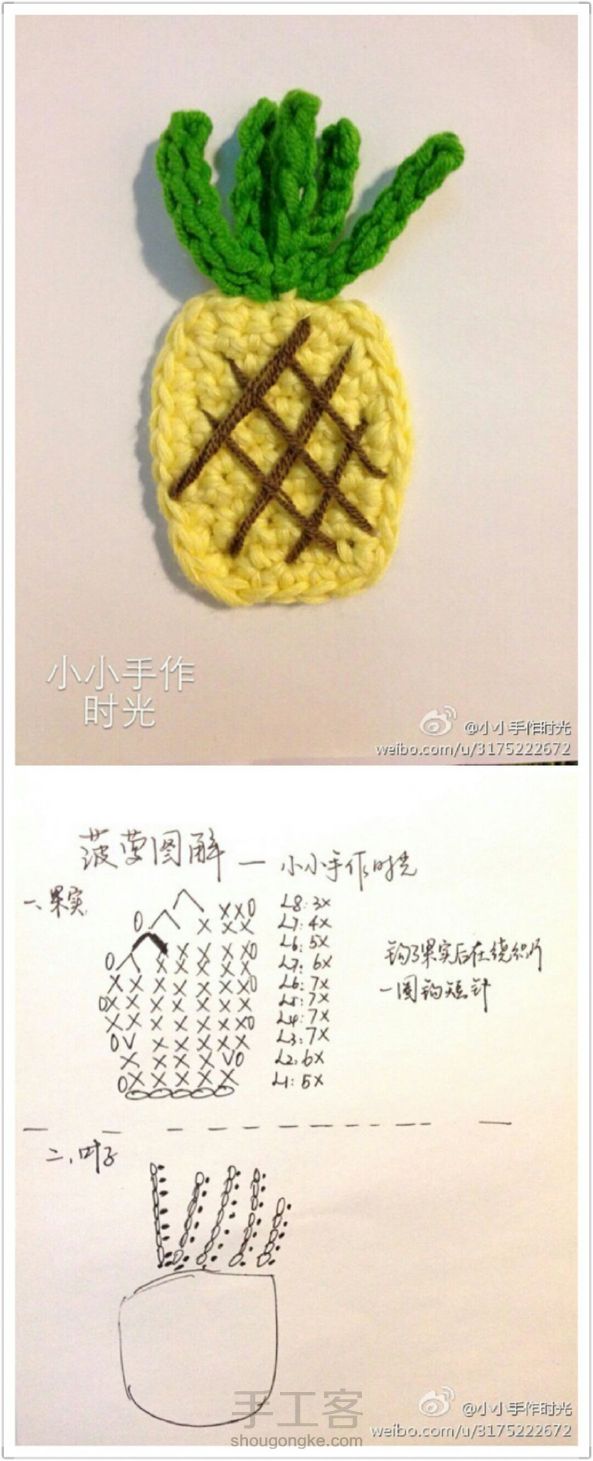 小小手作
时光
@小小手作时光
weibo.com/u/3175222672
菠萝图解 — 小小手作时光
一、果实
L8:3X
L7:4X
L6:5X
L7:6X
L6:7X
L5:7X
L4:7X
L3:7X
L2:6X
L1:5X
钩了果实后在绕织片
一圈钩短针
二、叶子
手工客
shougongke.com
@小小手作时光
weibo.com/u/3175222672